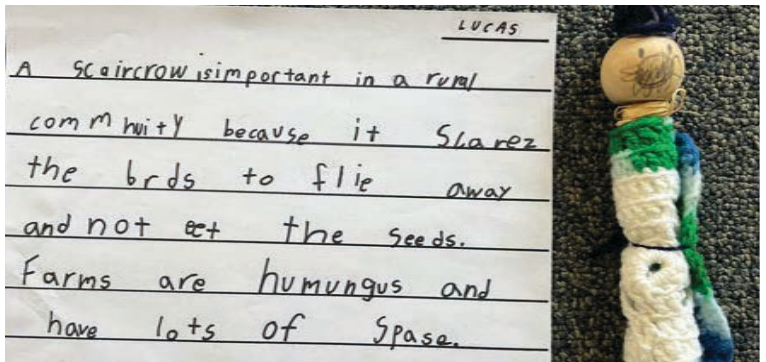 LUCAS
A scaircrow isimportant in a rural
commhuity because it scarez
the brds to flie away
and not eet the seeds.
Farms are humungus and
have lots of spase.